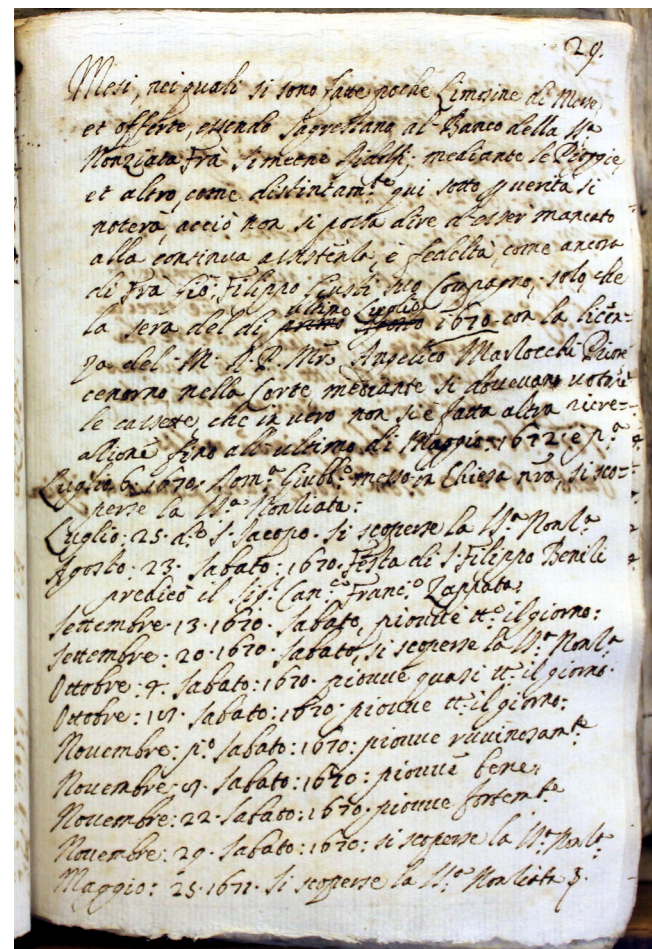 29.
Mesi, nei quali si sono fatte poche Limosine di Messe
et offerte, essendo Sagrestano al Banco della SS.ma
Nonziata Frà Simone mediante le Pioggie,
et altro, come distintam.te qui sotto p verità si
noterà, acciò non si possa dire d'esser mancato
alla continua assistenla, e fedeltà, come ancora
di Frà Gio: Filippo Giusti suo Compagno, solo, che
la sera del dì primo Agosto ultimo Luglio 1670 con la licen=
za del M. R. P. Mro. Angelico Marlocchi Priore
cenorno nella Corte mediante si dovevano votare
le cassette, che in vero non si è fatta altra ricre=
atione fino all'ultimo di Maggio: 1672: e p.a
Luglio 6. 1670. Dom.a Giubb.o messo in Chiesa nra, si sco=
perse la SS.a Nonliata:
Luglio: 25. d.o S. Jacopo. si scoperse la SS.a Nonl.a
Agosto: 23. Sabato: 1670. Festa di S. Filippo Benili
predicò il Sig.r Can.co Franc.o Zappata:
Settembre. 13. 1670. Sabato, piouue tt.o il giorno:
Settembre: 20. 1670. Sabato, si scoperse la SS.a Nonl.a
Ottobre: 4. Sabato: 1670. piouue quasi tt.o il giorno.
Ottobre: Sabato: 1670. piouue tt.o il giorno:
Novembre: p.o Sabato: 1670: piouue ruuinosam.te
Novembre: Sabato: 1670: piouue bene:
Novembre: 22. Sabato: 1670. piouue fortem.te
Novembre: 29. Sabato: 1670: si scoperse la SS.a Nonl.a
Maggio: 25. 1671. Si scoperse la SS.a Nonliata